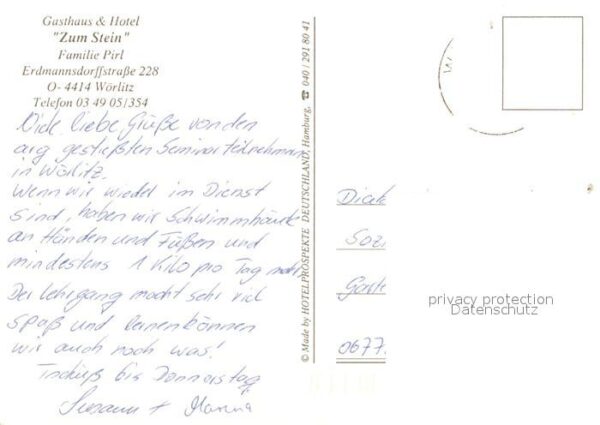 Gasthaus & Hotel
"Zum Stein"
Familie Pirl
Erdmannsdorffstraße 228
O- 4414 Wörlitz
Telefon 03 49 05/354
liebe Grüße von den
arg gestreßten Seminarteilnehmern
in Wörlitz.
Wenn wir wieder im Dienst
sind, haben wir Schwimmhäute
an Händen und Füßen und
mindestens 1 Kilo pro Tag mehr.
Der Lehrgang macht sehr viel
Spaß und lernen können
wir auch noch was!
Tschüß bis Donnerstag
Susann +
© Made by HOTELPROSPEKTE DEUTSCHLAND, Hamburg, ☎ 040 / 291 80 41
Sozi
privacy protection
Datenschutz
0677